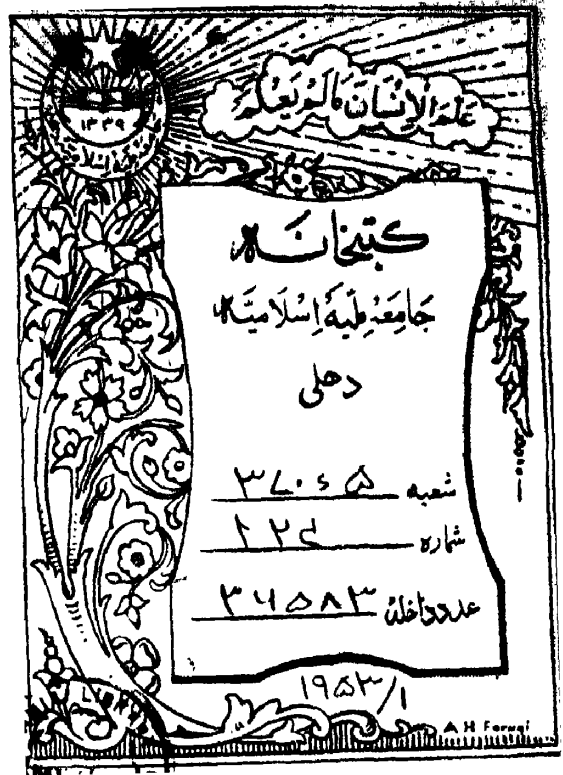 ۱۳۳۹
عَلَّمَ الْاِنْسَانَ مَالَمْ يَعْلَمْ
کتبخانہ
جَامِعَہ مِلّیَہ اِسْلَامِیَّہ
دہلی
شعبہ ۳۷۰ء۵
شمارہ ۲۲۷
عدد داخلہ ۳۶۵۸۳
۱۹۵۳/۱
LIBRARY
A H Faruqi